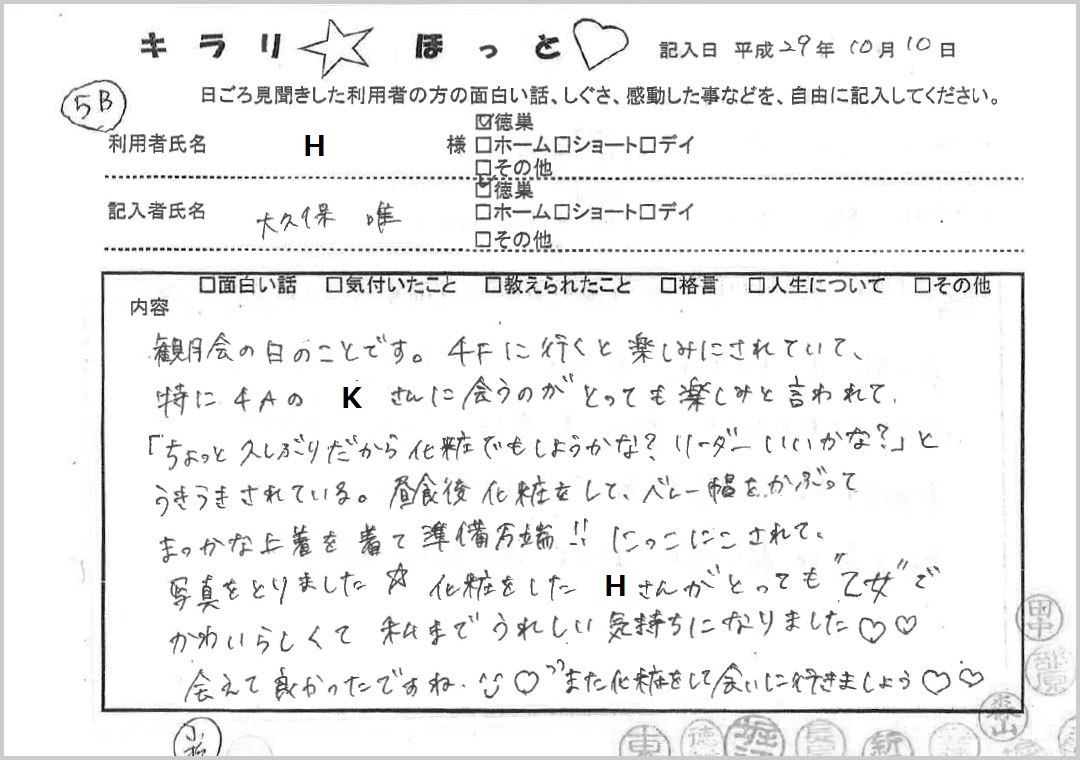 キラリ☆ほっと♡ 記入日 平成29年10月10日
5B
日ごろ見聞きした利用者の方の面白い話、しぐさ、感動した事などを、自由に記入してください。
利用者氏名 H 様 ☑徳巣
□ホーム□ショート□デイ
□その他
記入者氏名 大久保 唯 ☑徳巣
□ホーム□ショート□デイ
□その他
□面白い話 □気付いたこと □教えられたこと □格言 □人生について □その他
内容
観月会の日のことです。4Fに行くと楽しみにされていて、
特に4Aの K さんに会うのがとっても楽しみと言われて、
「ちょっと久しぶりだから化粧でもしようかな?リーダーいいかな?」と
うきうきされている。昼食後化粧をして、ベレー帽をかぶって
まっかな上着を着て準備万端!!にっこにこされて、
写真をとりました☆ 化粧をした H さんがとっても"乙女"で
かわいらしくて私までうれしい気持ちになりました♡♡
会えて良かったですね。♡また化粧をして会いに行きましょう♡♡
田中